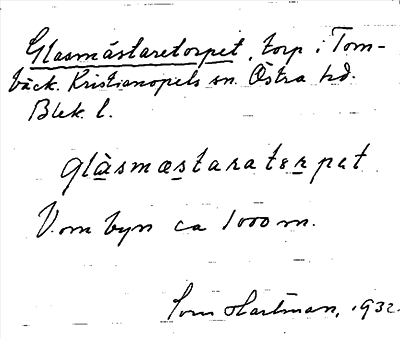 Glasmästaretorpet, torp i Tom-
bäck. Kristianopels sn. Östra hd.
Blek. l.
glàsmæstaratɛrpət
V. om byn ca 1000 m.
Hartman, 1932.